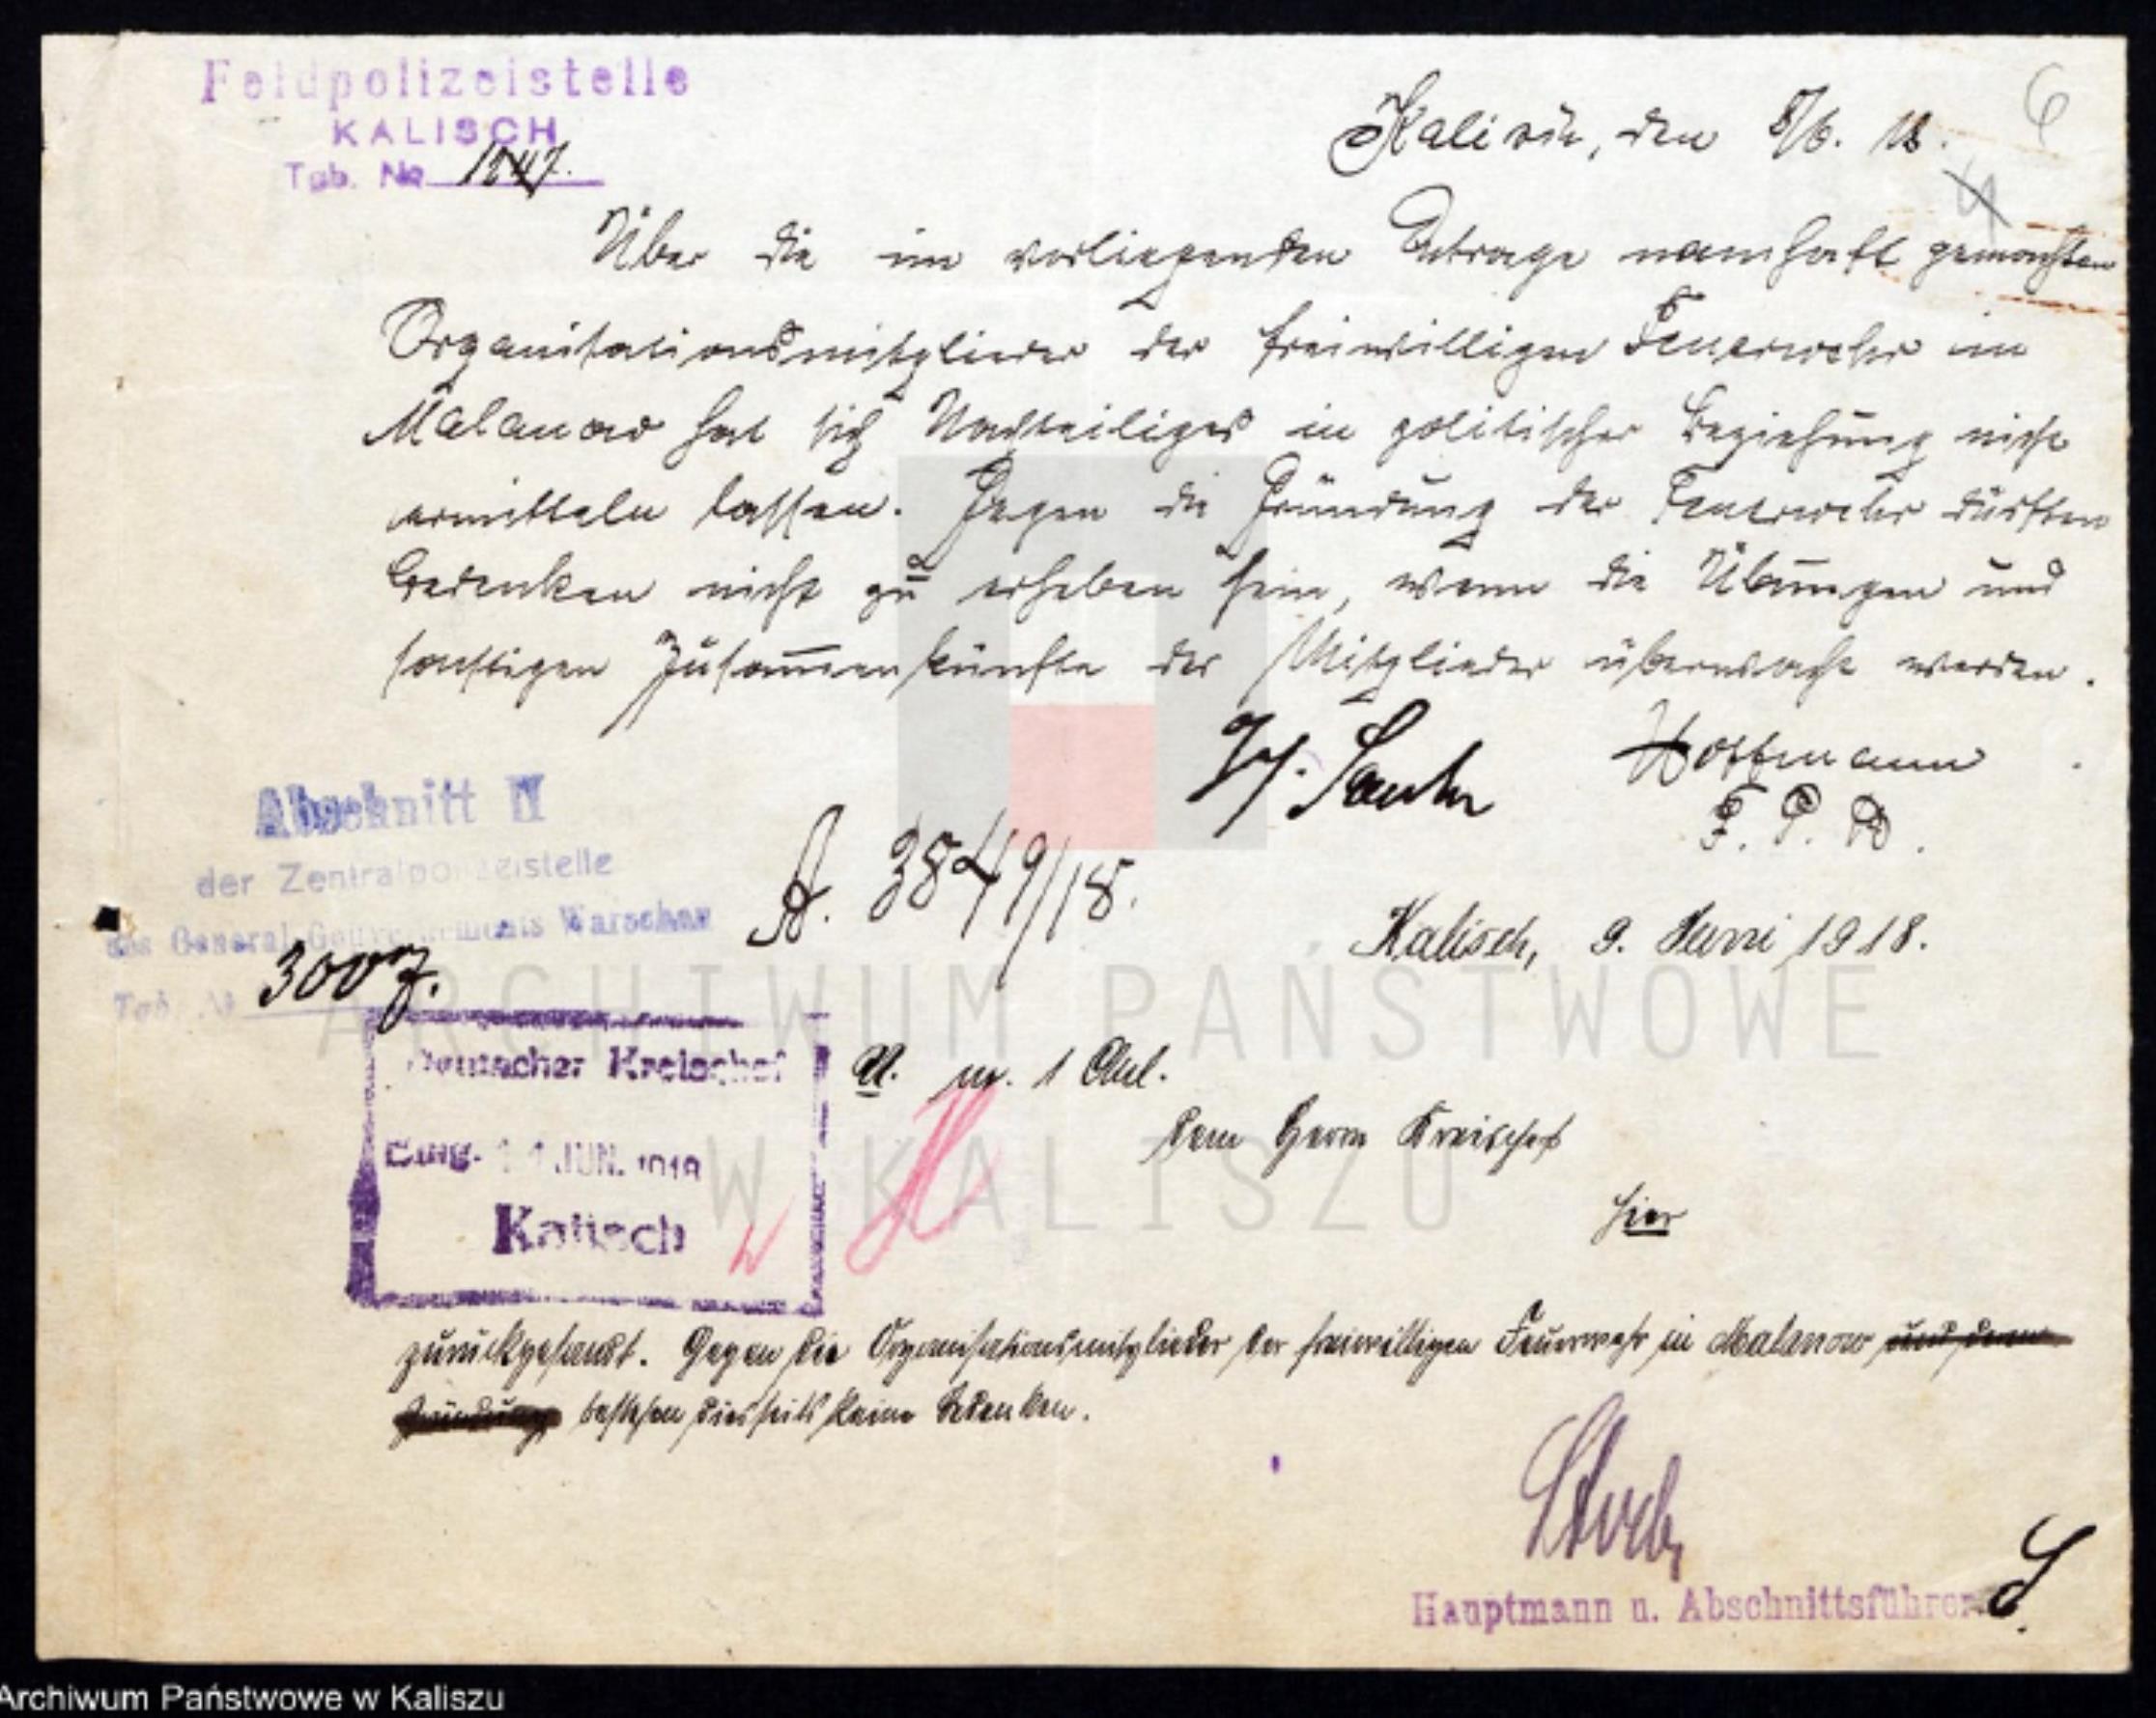 Feldpolizeistelle
KALISCH
Tgb. No
Kalisch, den 8/6. 18.
6
4
Über die im vorliegenden Antrage namhaft gemachten
Organisationsmitglieder der freiwilligen Feuerwehr in
Malanow hat sich Nachteiliges in politischer Beziehung nicht
ermitteln lassen. Gegen die Gründung der Feuerwehr dürften
Bedenken nicht zu erheben sein, wenn die Übungen und
sonstigen Zusammenkünfte der Mitglieder überwacht werden.
Hoffmann
F. P. B.
Abschnitt II
der Zentralpolizeistelle
des General-Gouvernements Warschau
Tgb. No 3007.
A. 3849/18.
Kalisch, 9. Juni 1918.
Deutscher Kreischef
Eing. 11 JUN. 1918
Kalisch
U. m. 1 Anl.
dem Herrn Kreischef
hier
zurückgesandt. Gegen die Organisationsmitglieder der freiwilligen Feuerwehr in Malanow und deren
Gründung bestehen diesseits keine Bedenken.
Hauptmann u. Abschnittsführer.
ARCHIWUM PAŃSTWOWE
W KALISZU
Archiwum Państwowe w Kaliszu